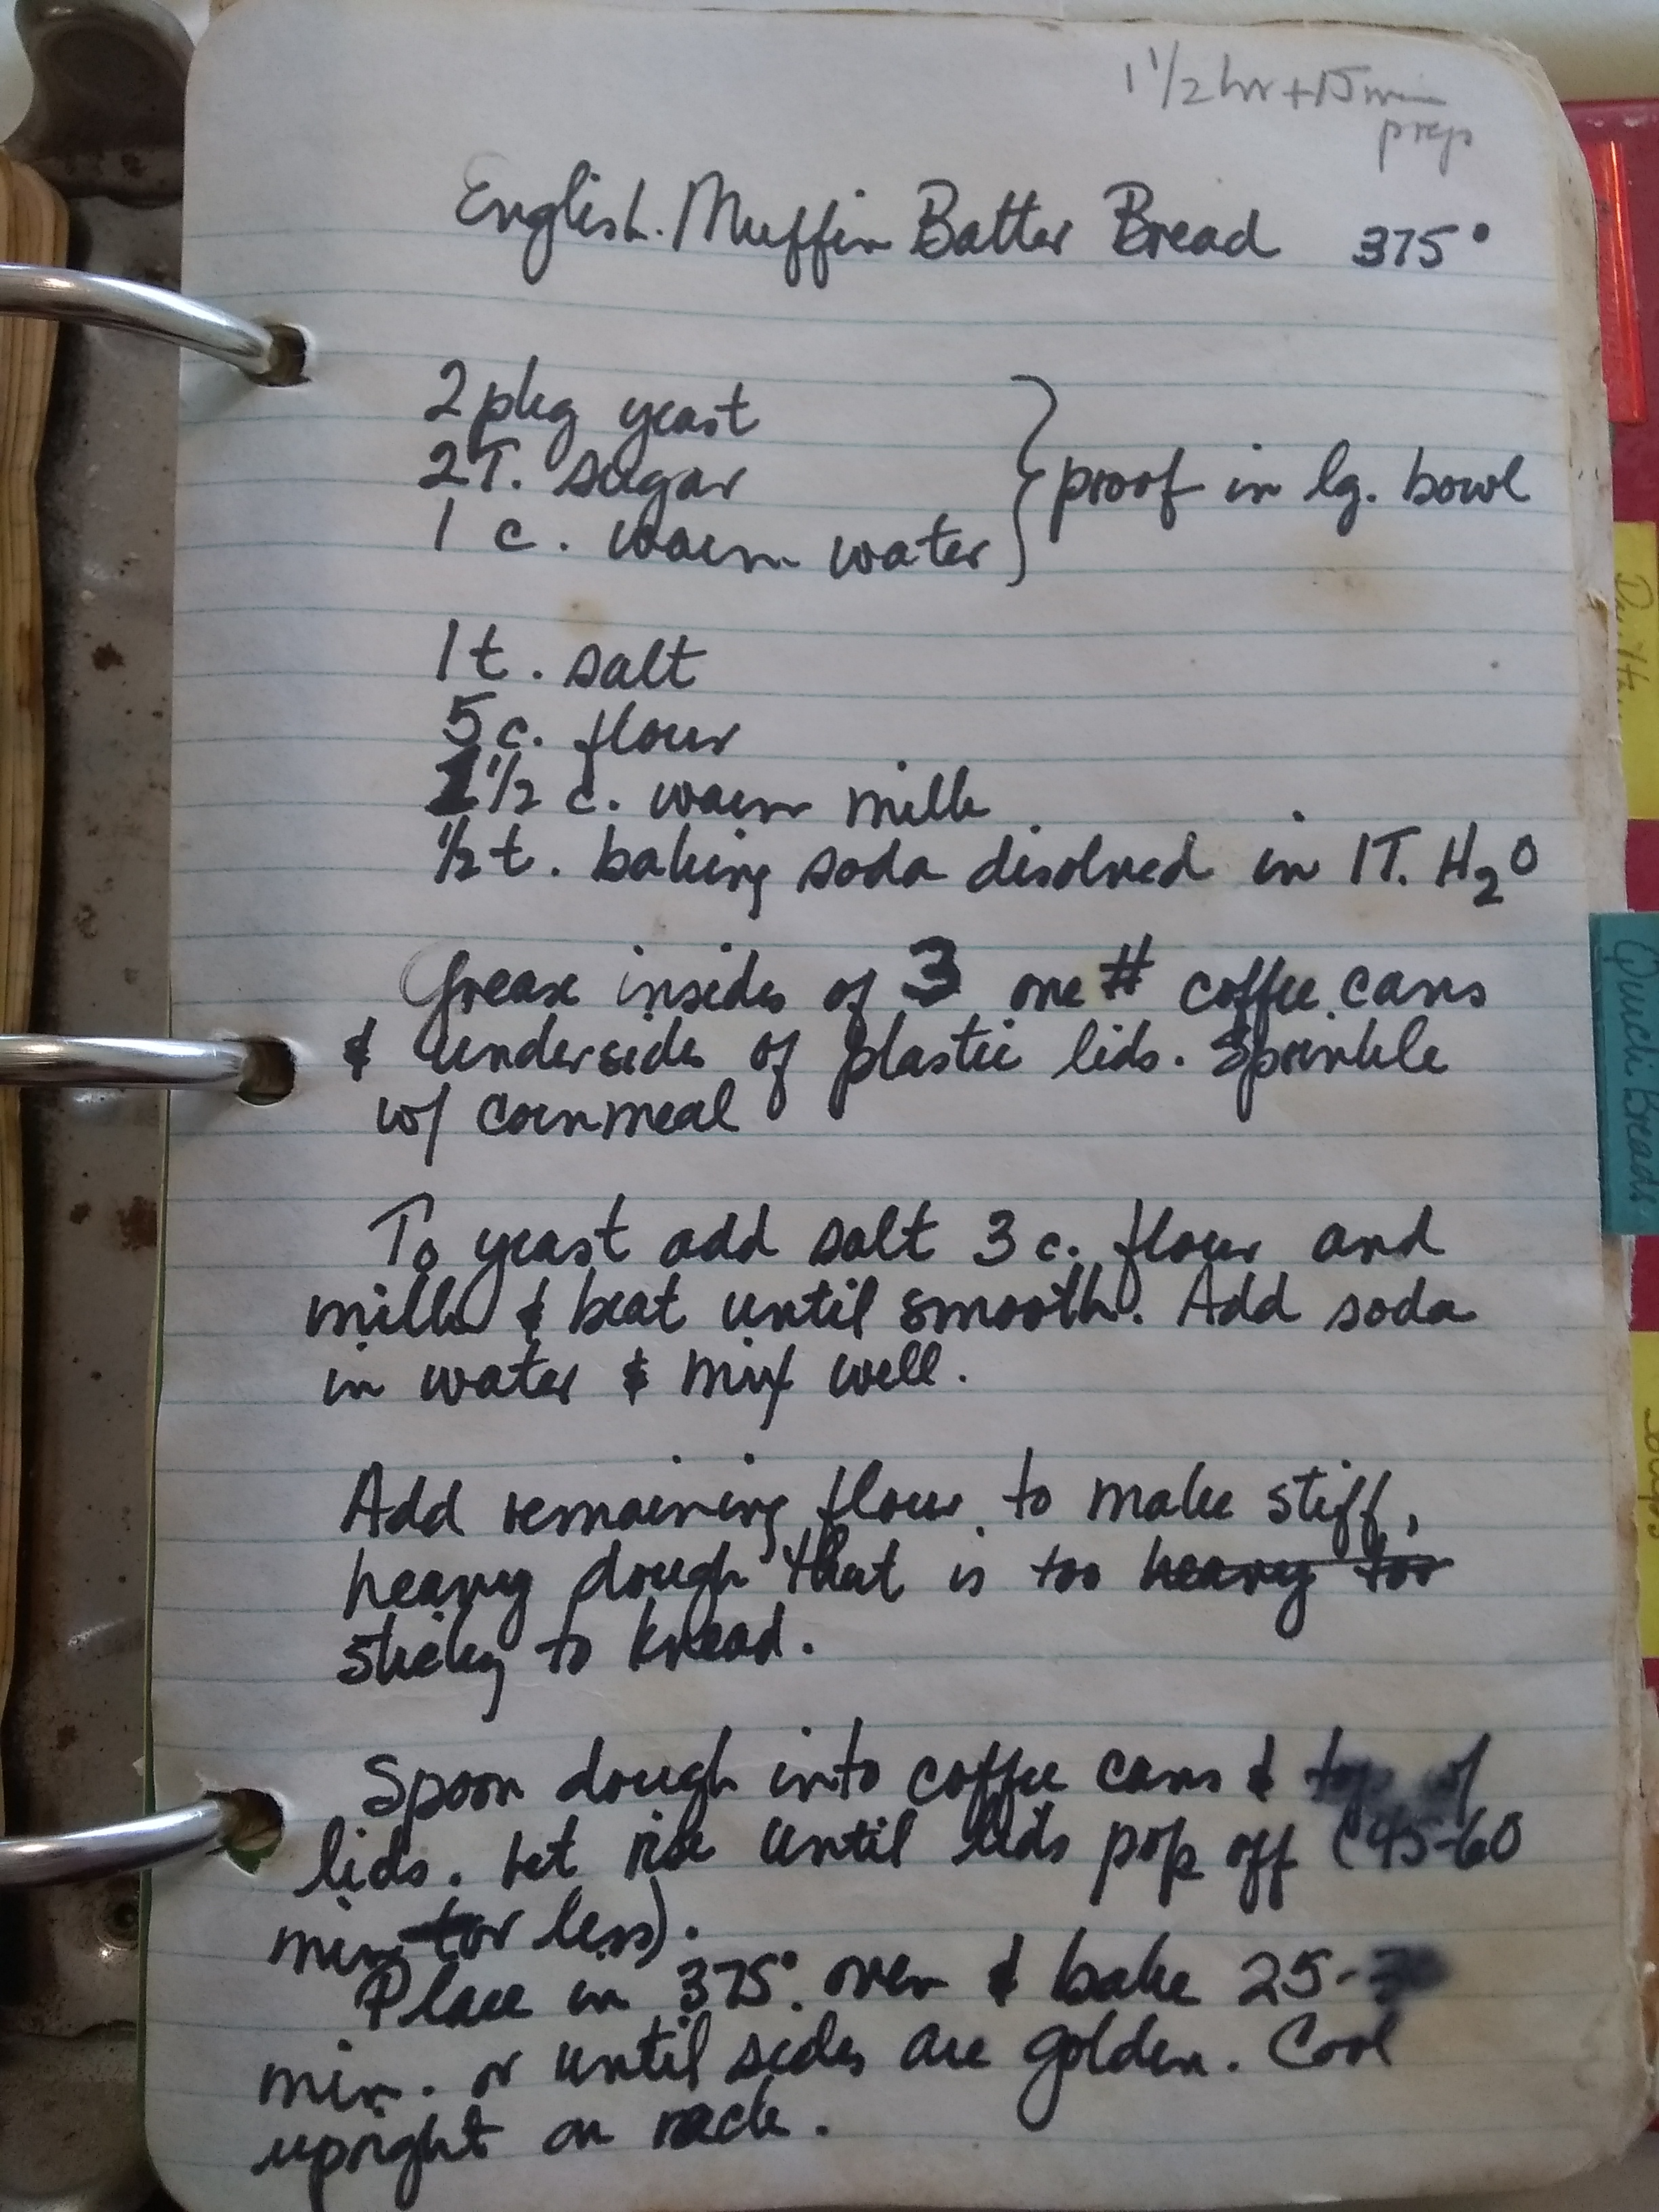 1 1/2 hr + 15 min
prep
English Muffin Batter Bread 375°
2 pkg yeast
2T. sugar
1 c. warm water
proof in lg. bowl
1 t. salt
5 c. flour
1 1/2 c. warm milk
1/2 t. baking soda disolved in 1T. H2O
Grease insides of 3 one # coffee cans
& undersides of plastic lids. Sprinkle
w/ cornmeal
To yeast add salt 3 c. flour and
milk & beat until smooth. Add soda
in water & mix well.
Add remaining flour to make stiff,
heavy dough that is too heavy for
sticky to knead.
Spoon dough into coffee cans & top w/
lids. Let rise until lids pop off (45-60
min or less).
Place in 375° oven & bake 25-30
min. or until sides are golden. Cool
upright on rack.
Quick Breads